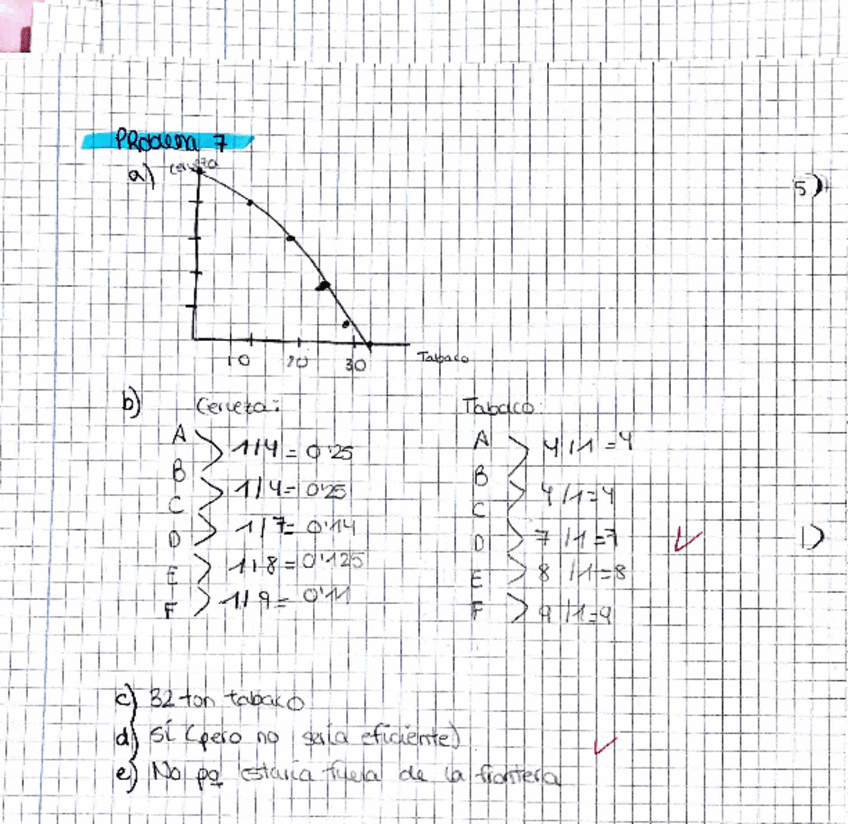 PRoblema 7
a) Cerveza
10 20 30 Tabaco
b) Cerveza: Tabaco
A
1/4 = 0'25
B
1/4= 0'25
C
1/7= 0'14
D
1/8=0'125
E
1/9= 0'11
F
A
4/1=4
B
4/1=4
C
7/1=7
D
8/1=8
E
9/1=9
F
c) 32 ton tabaco
d) Sí (pero no sería eficiente)
e) No pq estaría fuera de la frontera
5)
1)